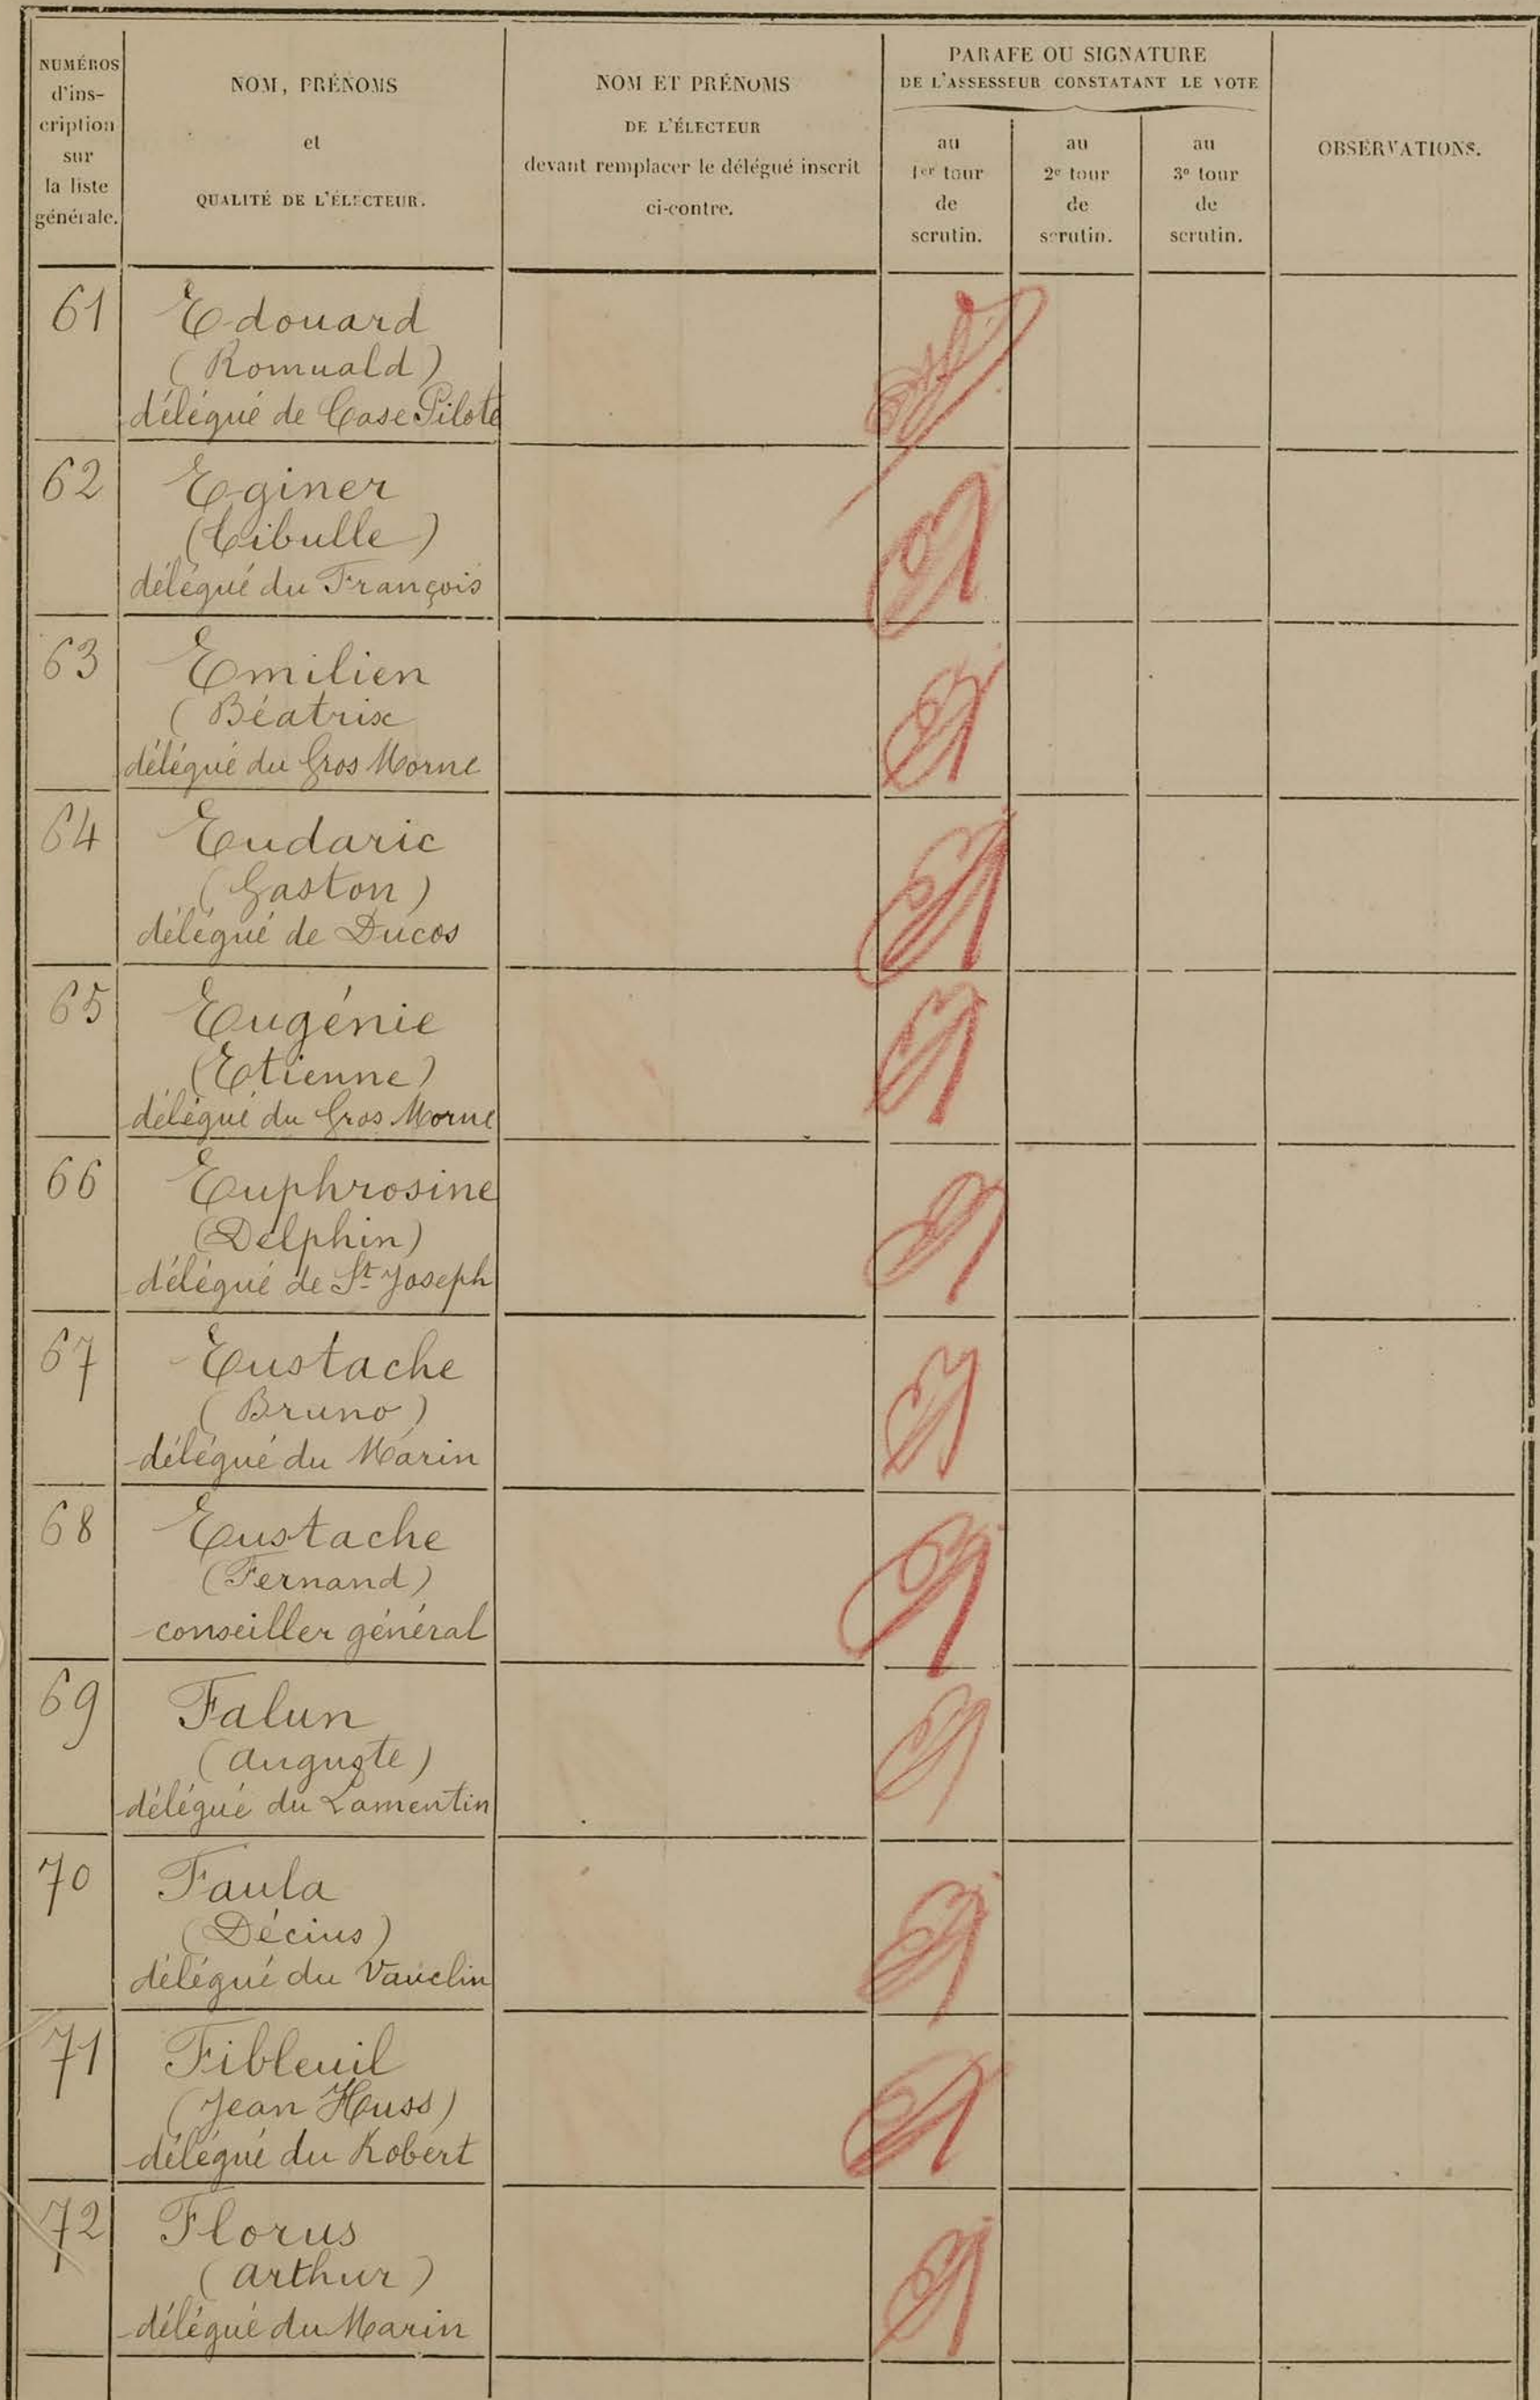 NUMÉROS
d'ins-
cription
sur
la liste
générale.
NOM, PRÉNOMS
et
QUALITÉ DE L'ÉLECTEUR.
NOM ET PRÉNOMS
DE L'ÉLECTEUR
devant remplacer le délégué inscrit
ci-contre.
PARAFE OU SIGNATURE
DE L'ASSESSEUR CONSTATANT LE VOTE
au
1er tour
de
scrutin.
au
2e tour
de
scrutin.
au
3e tour
de
scrutin.
OBSERVATIONS.
61 Edouard
(Romuald)
délégué de Case Pilote
62 Eginer
(Tibulle)
délégué du François
63 Emilien
(Béatrix
délégué du Gros Morne
64 Eudaric
(Gaston)
délégué de Ducos
65 Eugénie
(Etienne)
délégué du Gros Morne
66 Euphrosine
(Delphin)
délégué de St Joseph
67 Eustache
(Bruno)
délégué du Marin
68 Eustache
(Fernand)
conseiller général
69 Falun
(Auguste)
délégué du Lamentin
70 Faula
(Décius)
délégué du Vauclin
71 Fibleuil
(Jean Huss)
délégué du Robert
72 Florus
(Arthur)
délégué du Marin